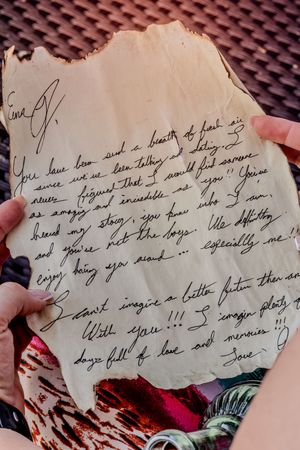 You have been such a breath of fresh air
since we've been talking and dating. I
never figured that I would find someone
as amazing and incredible as you!! You've
heard my story, you know who I am.
and you've met the boys. We definitely
enjoy having you around ... especially me!!
I can't imagine a better future than one
With you!!! I imagin plenty
days full of love and memories!!!
Love